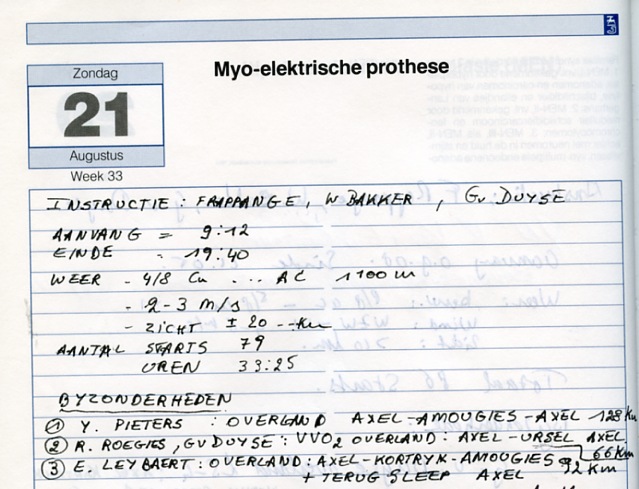 Zondag
21
Augustus
Week 33
Myo-elektrische prothese
INSTRUCTIE : FRAPPANGE, W BAKKER, Gv DUYSE
AANVANG = 9:12
EINDE - 19:40
WEER - 4/8 Cu ... AC 1100 m
- 2-3 M/S
- ZICHT ± 20 -- Km
AANTAL STARTS 79
UREN 33:25
BYZONDERHEDEN
① Y. PIETERS : OVERLAND AXEL-AMOUGIES-AXEL 128 Km
② R. ROEGIES, GV DUYSE : VVO2 OVERLAND : AXEL-URSEL AXEL
66 Km
③ E. LEYBAERT : OVERLAND : AXEL-KORTRYK-AMOUGIES 92 Km
+ TERUG SLEEP AXEL